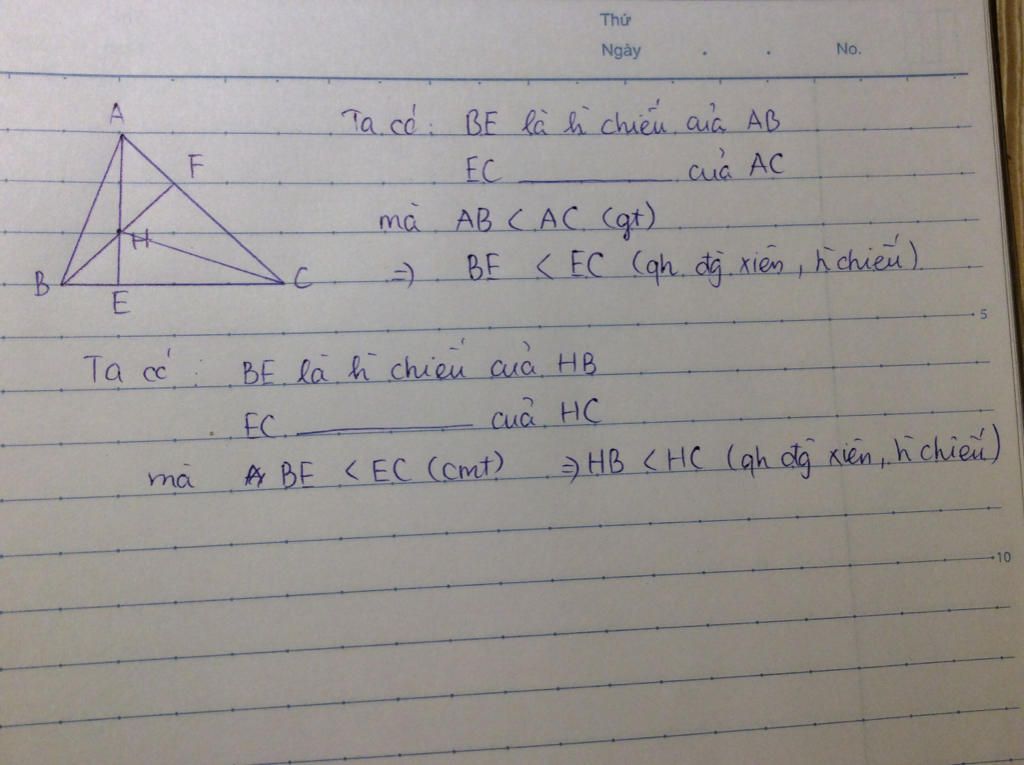 Thứ
Ngày . . No.
A
F
H
B
E
C
Ta có: BE là h̀ chiếu của AB
EC ________ của AC
mà AB < AC (gt)
=> BE < EC (qh đg̀ xiên, h̀ chiếu)
5
Ta có: BE là h̀ chiếu của HB
EC ________ của HC
mà BE < EC (cmt) => HB < HC (qh đg̀ xiên, h̀ chiếu)
10